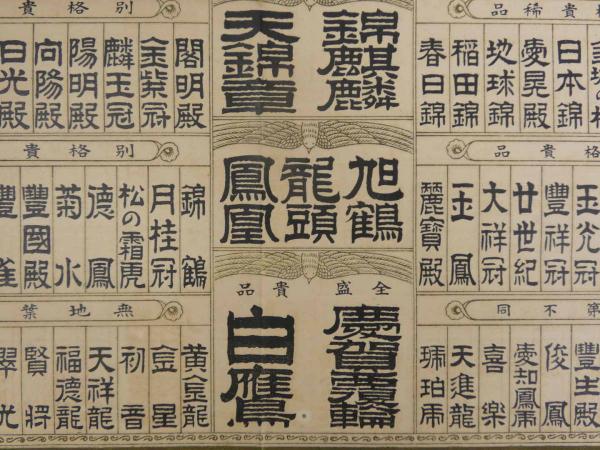 貴稀品
日本錦
愛晃殿
地球錦
稲田錦
春日錦
錦麒麟
金鹿麗
天錦章
別格貴
閣明殿
金紫冠
麟玉冠
陽明殿
向陽殿
日光殿
格貴品
玉光冠
豐祥冠
廿世紀
大祥冠
玉鳳
麗寶殿
旭鶴
龍頭
鳳凰
別格貴
錦鶴
月桂冠
松の霜
德鳳
菊水
豐國殿
第不同
豐玉殿
俊鳳
喜樂
天進龍
琥珀
全盛貴品
慶賀
白鷹
無地葉
黃金龍
金星
初音
天祥龍
福德龍
賢將
翠光